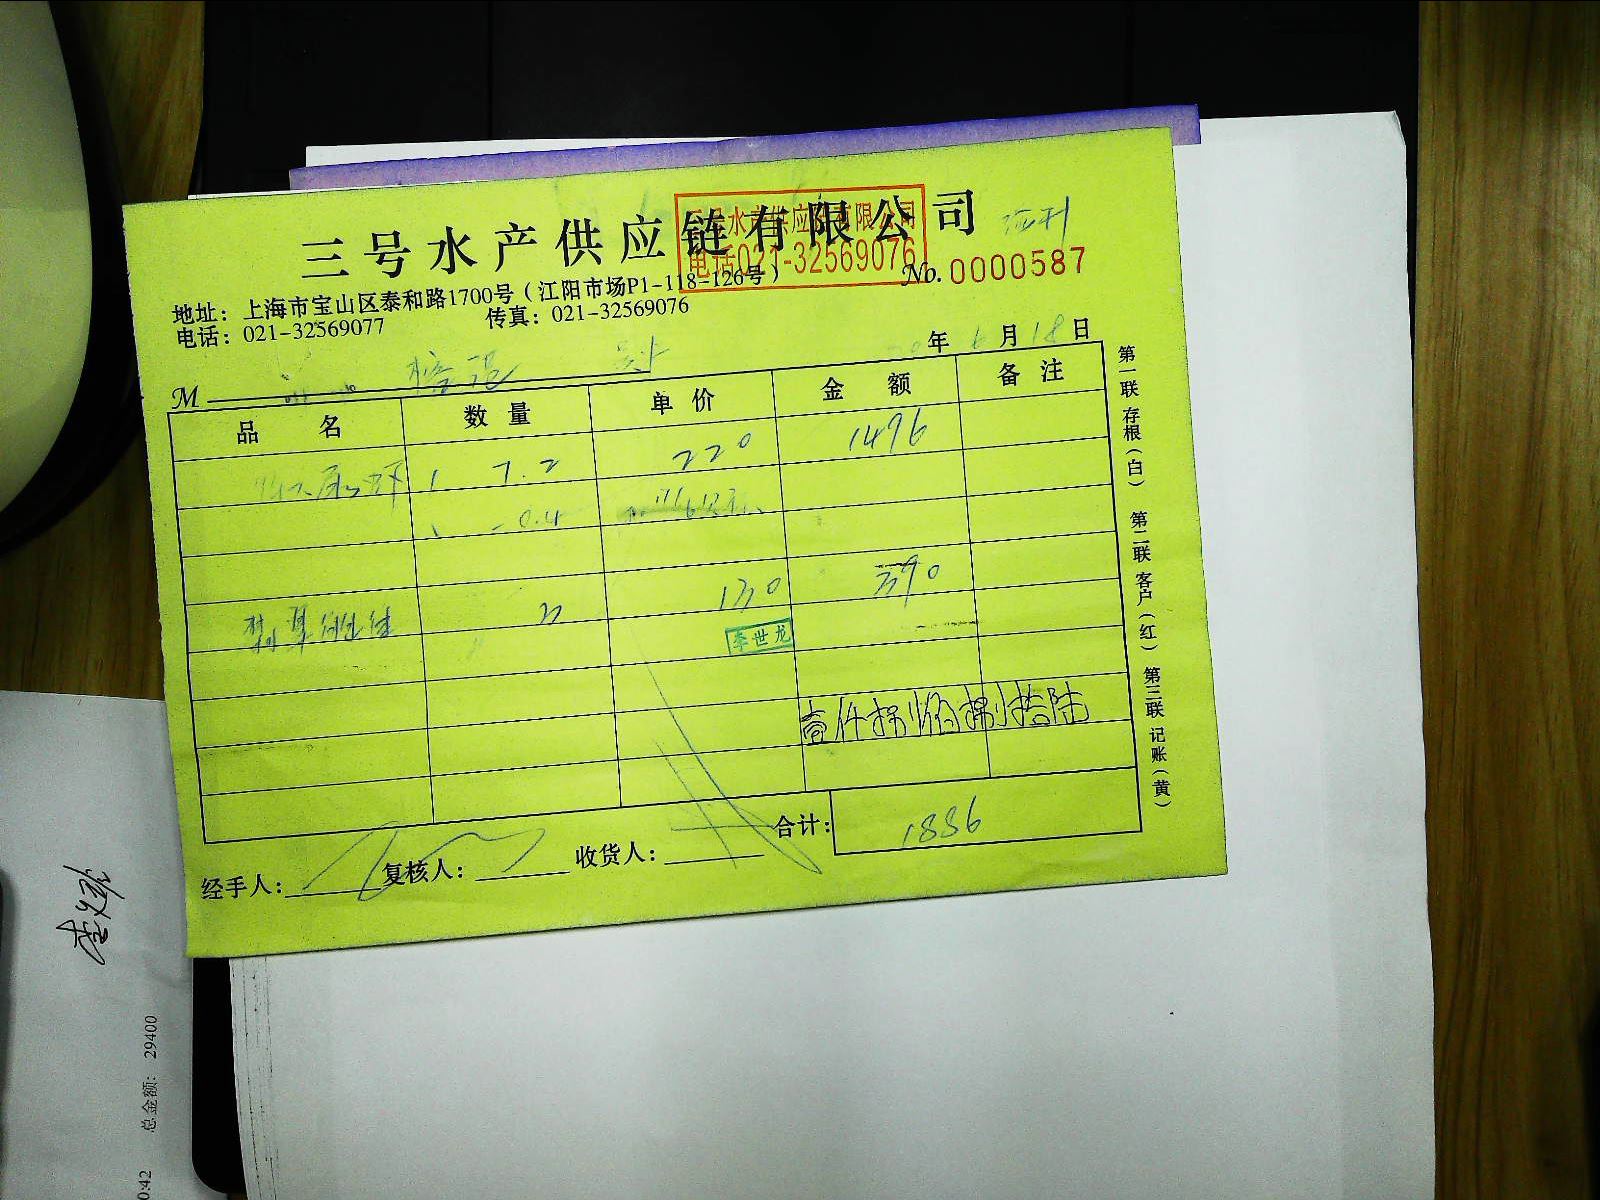 三号水产供应链有限公司
三号水产供应链有限公司
电话021-32569076
No. 0000587
地址：上海市宝山区泰和路1700号（江阳市场P1-118-126号）
电话：021-32569077 传真：021-32569076
年 6 月 18 日
M
品 名 数 量 单 价 金 额 备 注
7.2 220 1496
-0.4
3 130 390
李世龙
壹仟捌佰捌拾陆
合计： 1886
经手人： 复核人： 收货人：
第一联 存根（白） 第二联 客户（红） 第三联 记账（黄）
总金额： 29400
0:42